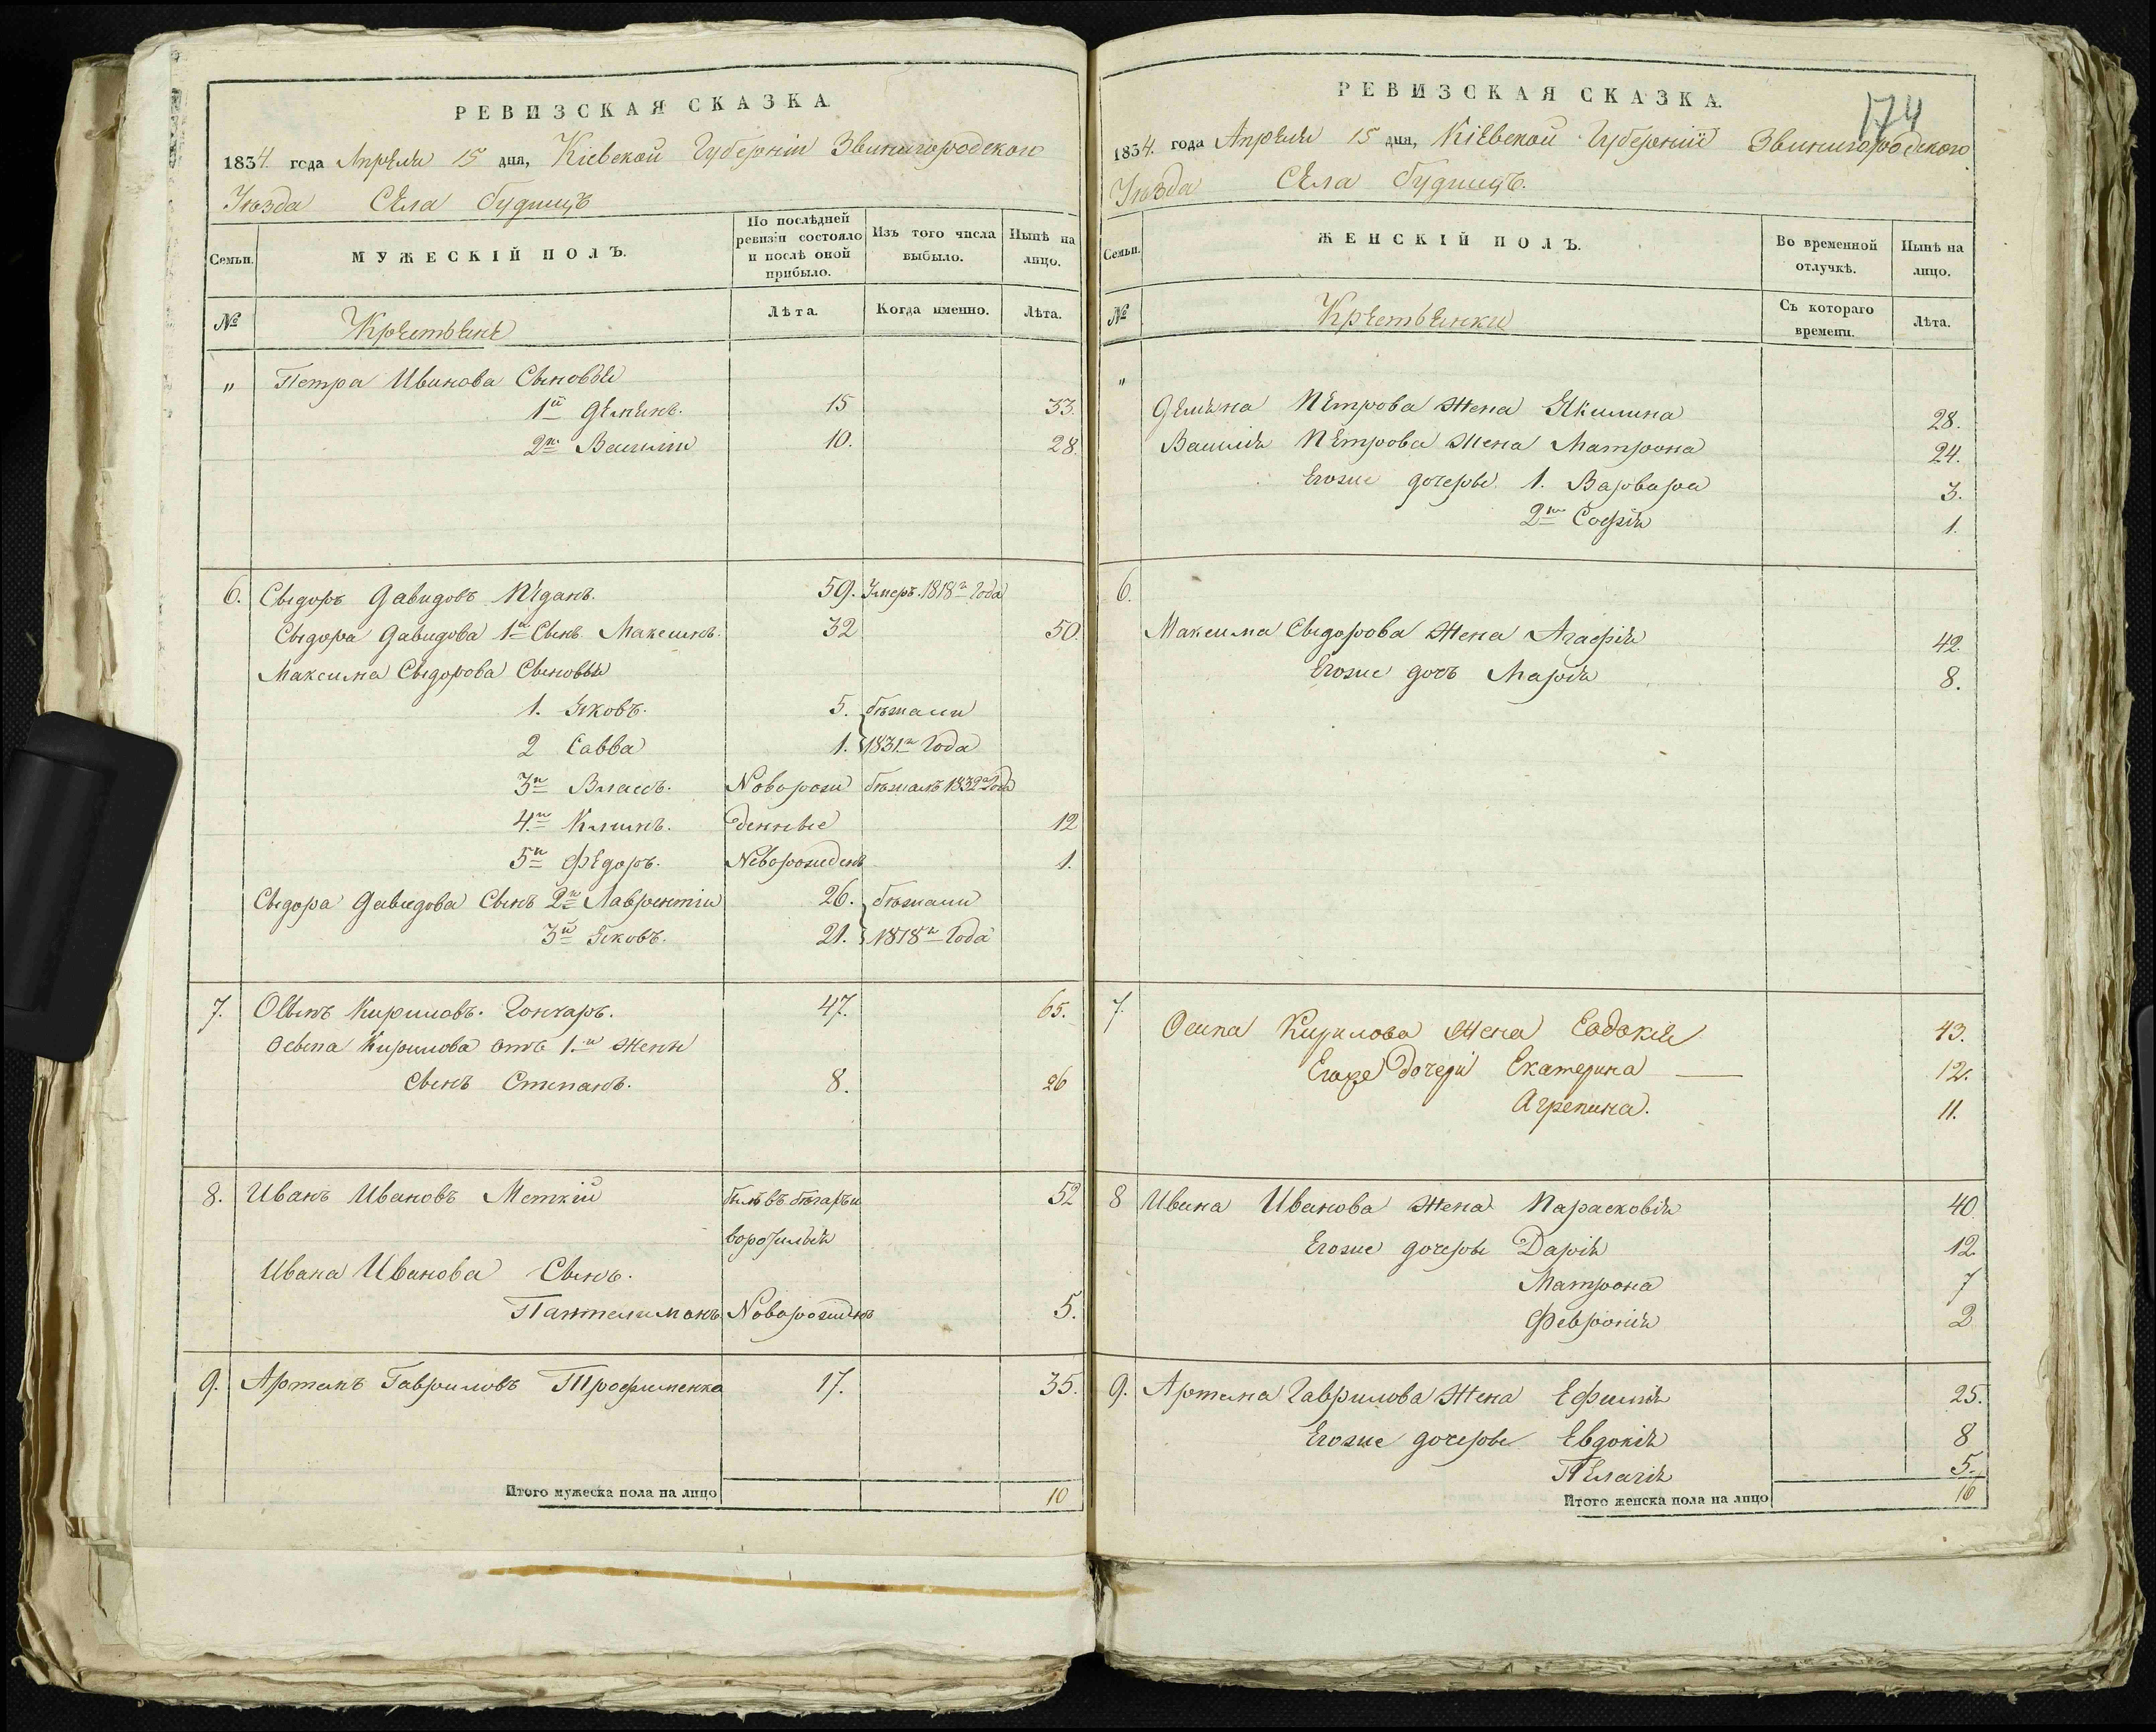 РЕВИЗСКАЯ СКАЗКА
1834. года Апреля 15 дня, Кіевской Губерніи Звинигородскаго
Уѣзда Села Будищъ
Семьи.
МУЖЕСКІЙ ПОЛЪ.
По послѣдней ревизіи состояло и послѣ оной прибыло.
Изъ того числа выбыло.
Нынѣ на лицо.
№
Крестьяне
Лѣта.
Когда именно.
Лѣта.
" Петра Иванова Сыновья
1й Демьянъ. 15 33.
2й Василій 10. 28.
6. Сыдоръ Давидовъ 59. Умеръ 1818го Года
Сыдора Давидова 1й Сынъ Максимъ. 32 50
Максима Сыдорова Сыновья
1. Яковъ. 5. бѣжали
2 Савва 1. 1831го Года
3й Власъ. Новорож бѣжалъ 1832го Года
4й Климъ. денные 12
5й Федоръ. Новорожденъ 1.
Сыдора Давидова Сынъ 2й Лаврентій 26. бѣжали
3й Яковъ. 21. 1818го Года
7. Осыпъ Кириловъ. Гончаръ. 47. 65.
Осыпа Кирилова отъ 1й жены
Сынъ Степанъ. 8. 26
8. Иванъ Ивановъ 52
Ивана Иванова Сынъ.
Пантелимонъ Новорожденъ 5.
9. Артемъ Гавриловъ Трофименко 17. 35.
Итого мужеска пола на лицо 10
РЕВИЗСКАЯ СКАЗКА.
174
1834. года Апреля 15 дня, Кіевской Губерніи Звинигородского
Уѣзда Села Будищъ.
Семьи.
ЖЕНСКІЙ ПОЛЪ.
Во временной отлучкѣ.
Нынѣ на лицо.
№
Крестьянки
Съ котораго времени.
Лѣта.
"
Демьяна Петрова жена Якилина 28.
Василія Петрова жена Матрона 24.
Егоже дочеры 1. Варвара 3.
2я Софія 1.
6.
Максима Сыдорова жена Агафія 42.
Егоже дочь Марія 8.
7.
Осипа Кирилова жена Евдокія 43.
Егоже дочери Екатерина — 12.
Агрепина. 11.
8 Ивана Иванова жена Парасковія 40
Егоже дочеры Дарія 12
Матрона 7
Февронія 2
9. Артема Гаврилова жена Ефимія 25.
Егоже дочеры Евдокія 8
Пелагія 5.
Итого женска пола на лицо 16